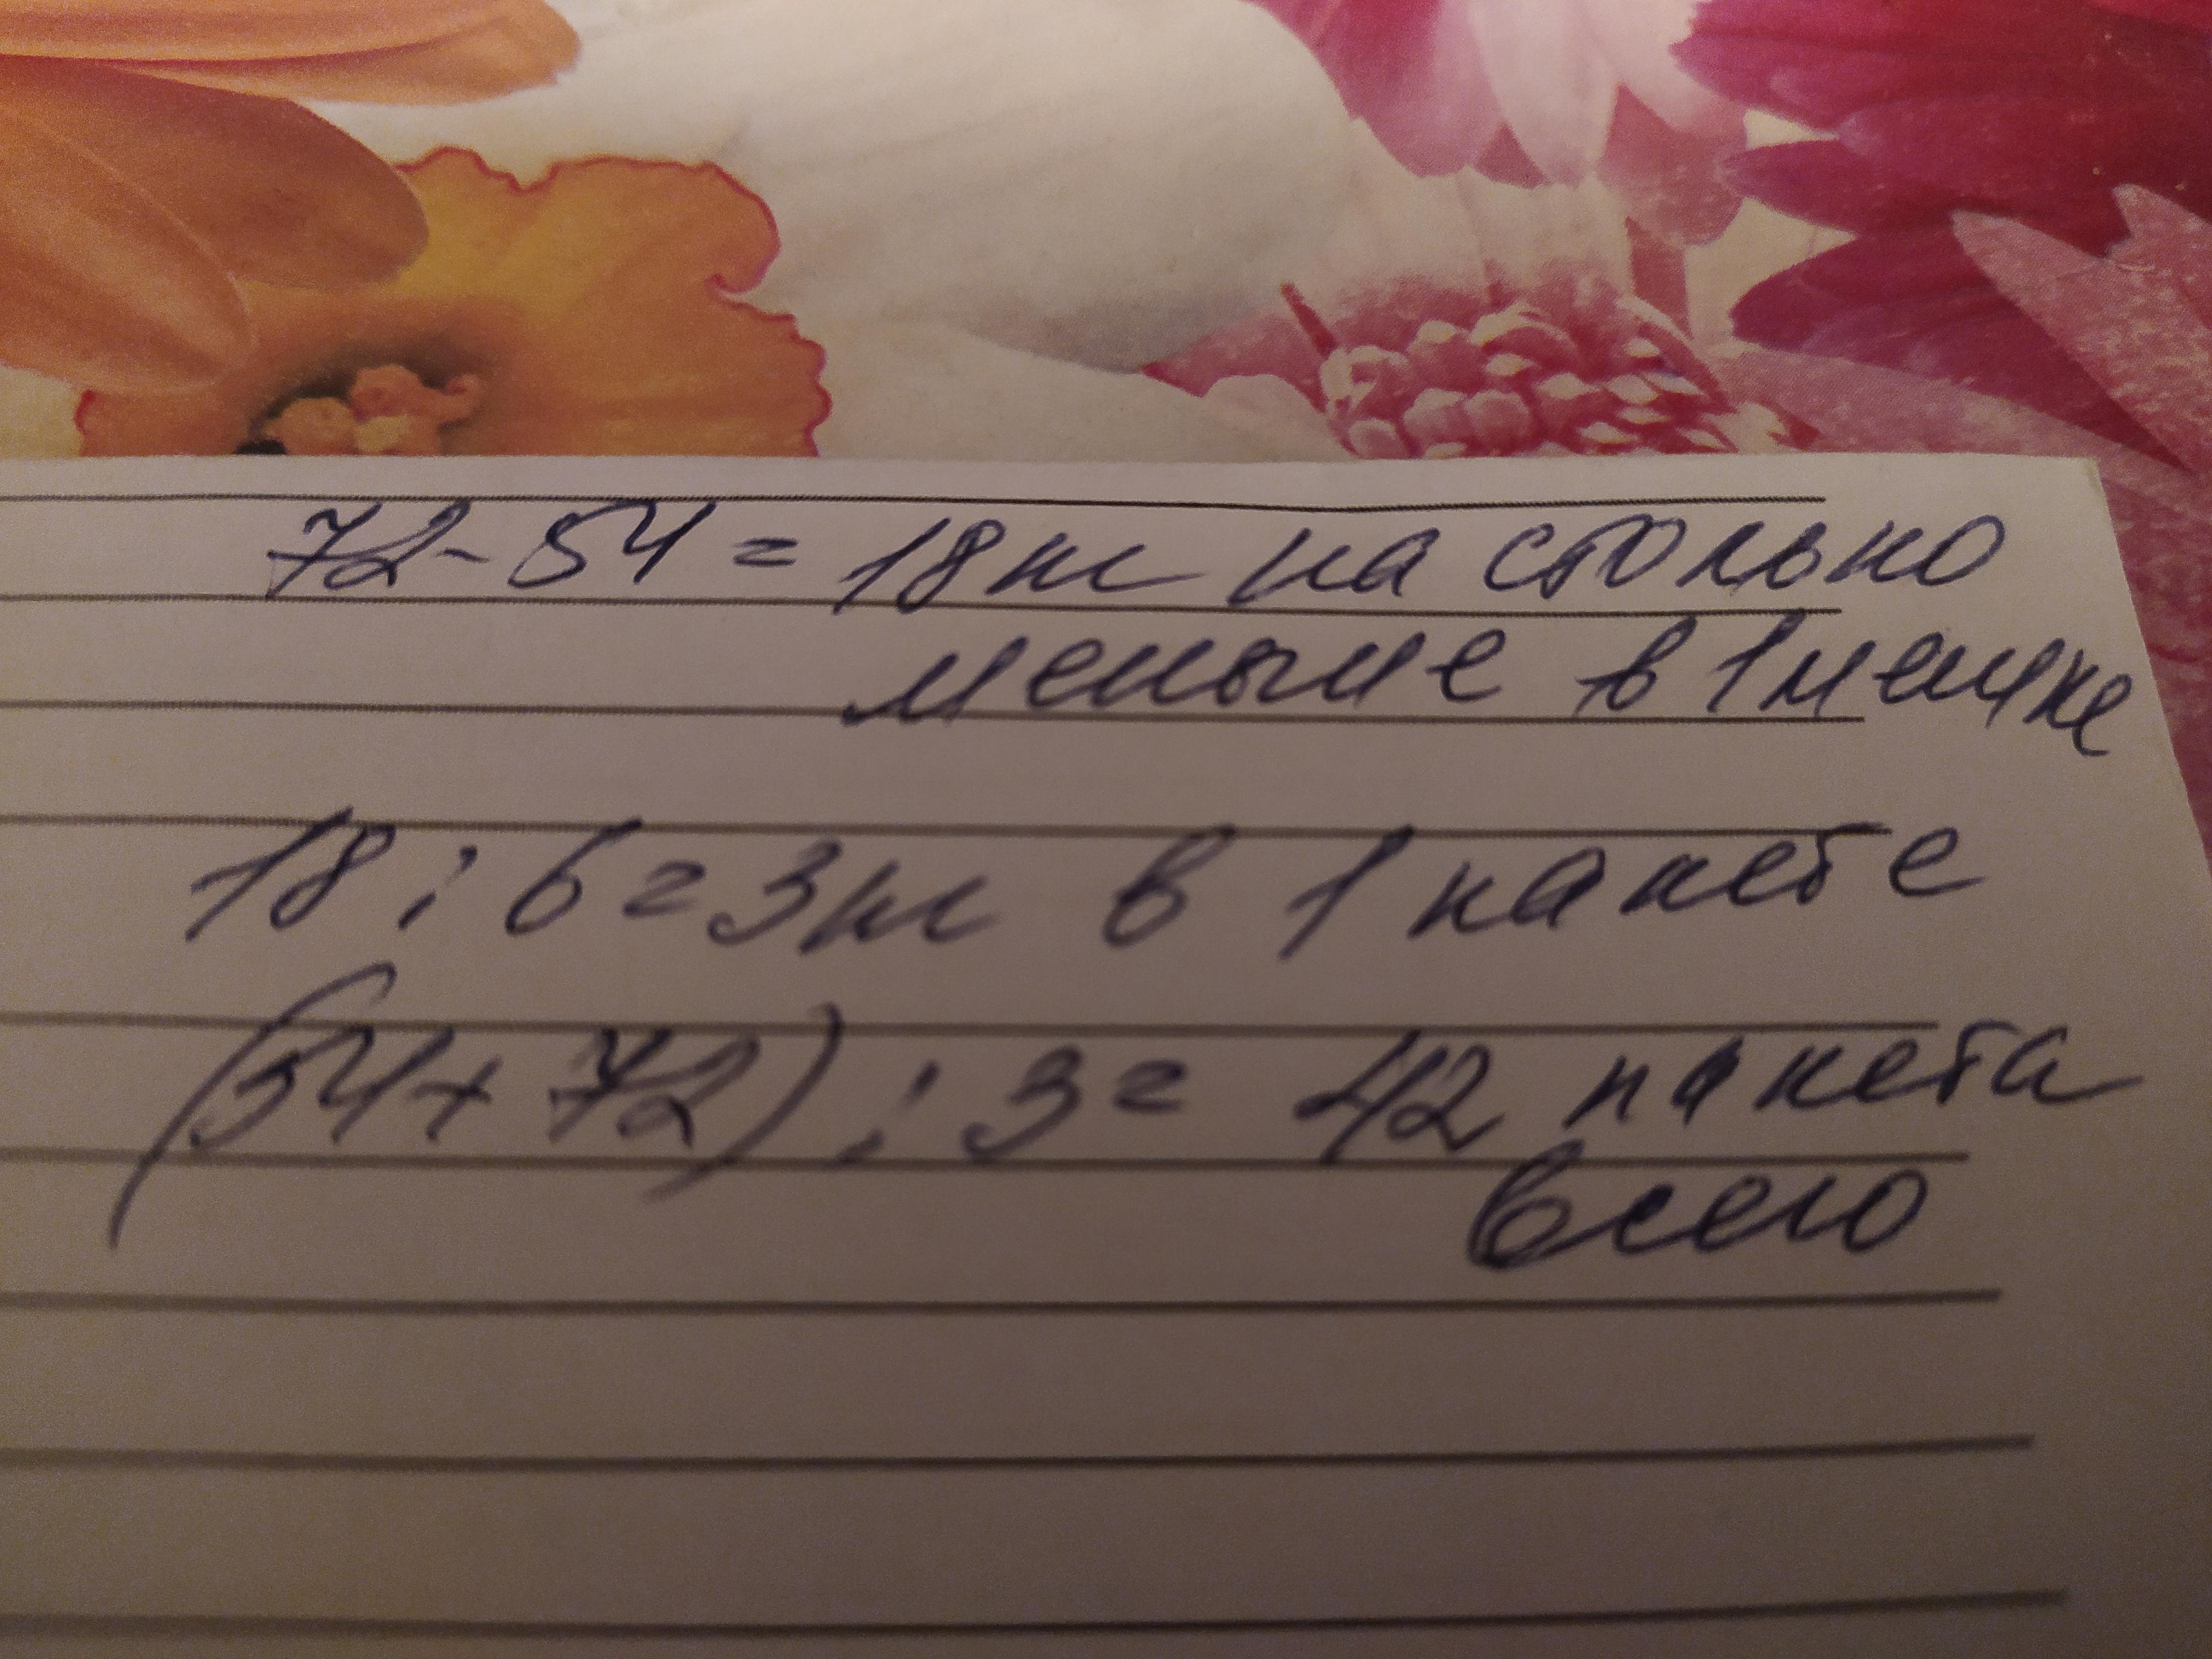 72-54=18кг на столько
меньше в 1 мешке
18:6=3кг в 1 пакете
(54+72):3= 42 пакета
всего